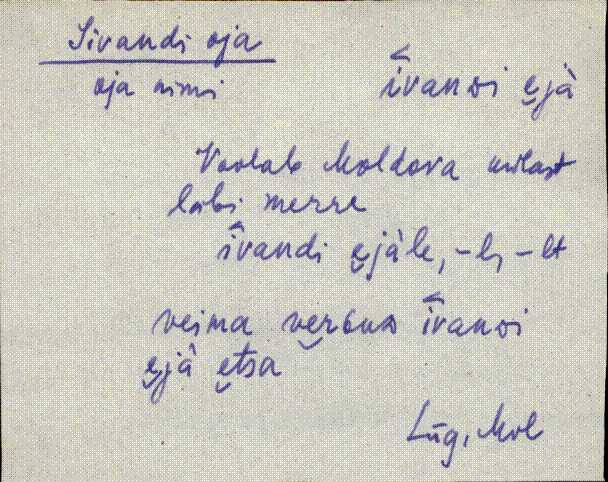 Iivandi oja
oja nimi
īvanᴅi ẹjà
Voolab Moldova külast
läbi merre
īvandi ẹjàle, -l, -lt
veima verᴋuᴅ īvanᴅi
ẹjà ẹtsa
Lüg, Mol